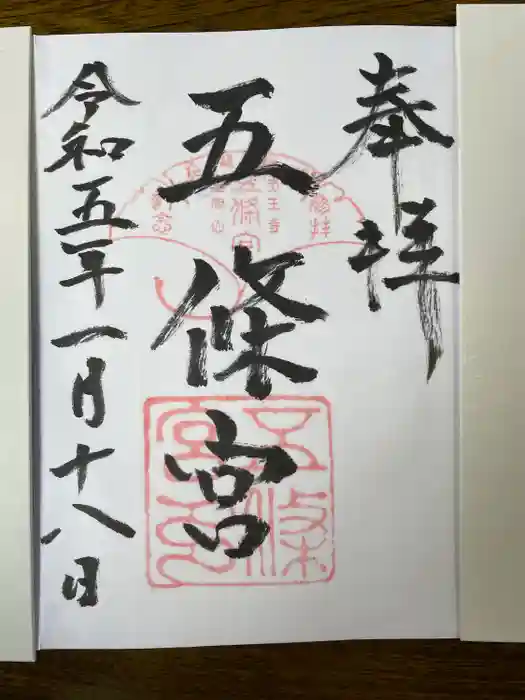 奉拝
五條宮
令和五年一月十八日